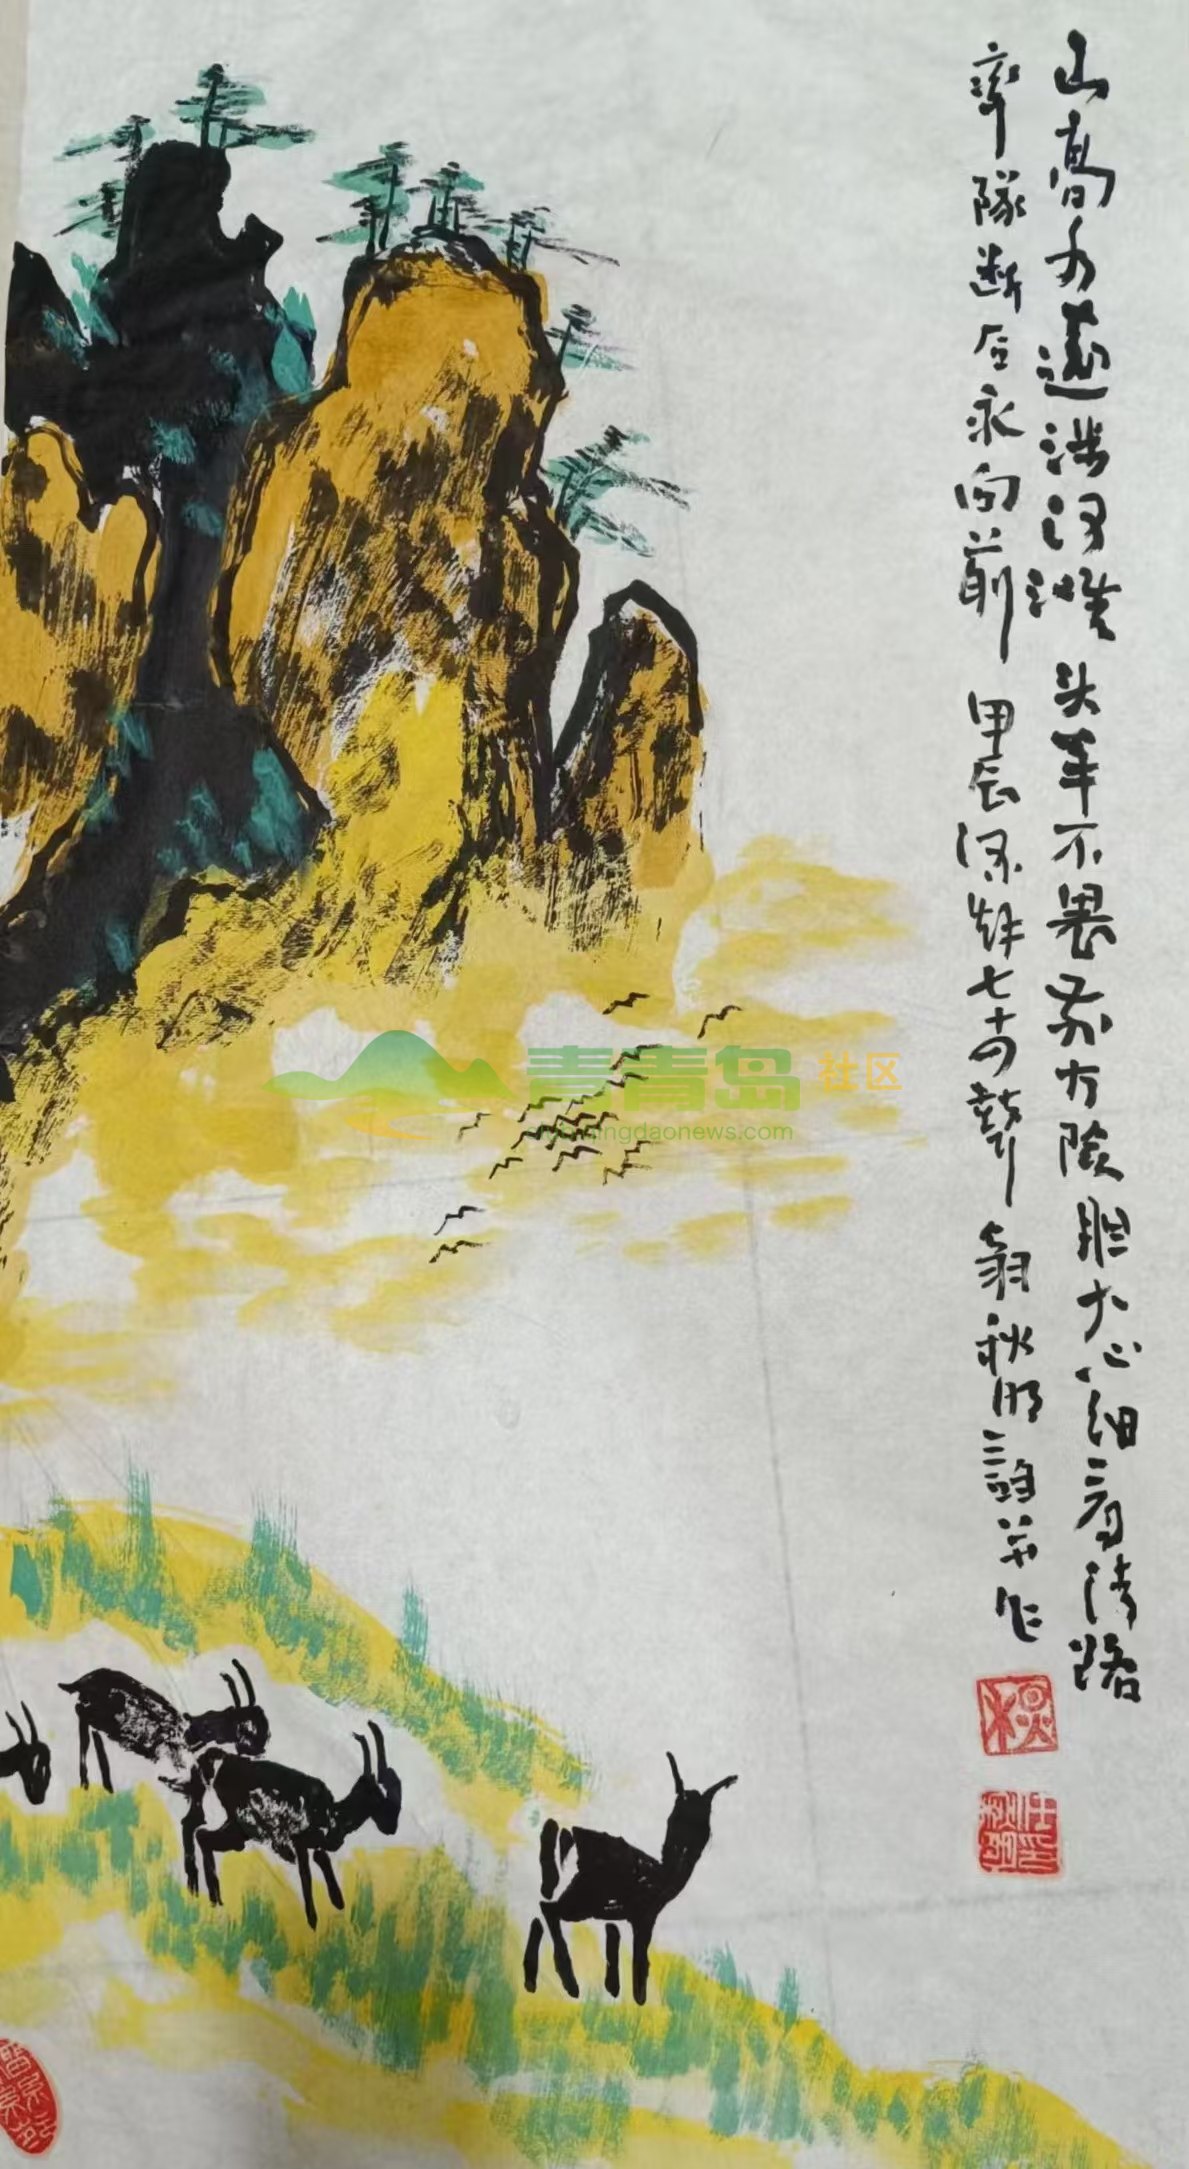 山高水遠涉河灘头羊不畏方險胆大心细看清路
率隊断后永向前 甲辰深秋七十四聋翁秋明詩并作
青青岛社区
qingdaonews.com